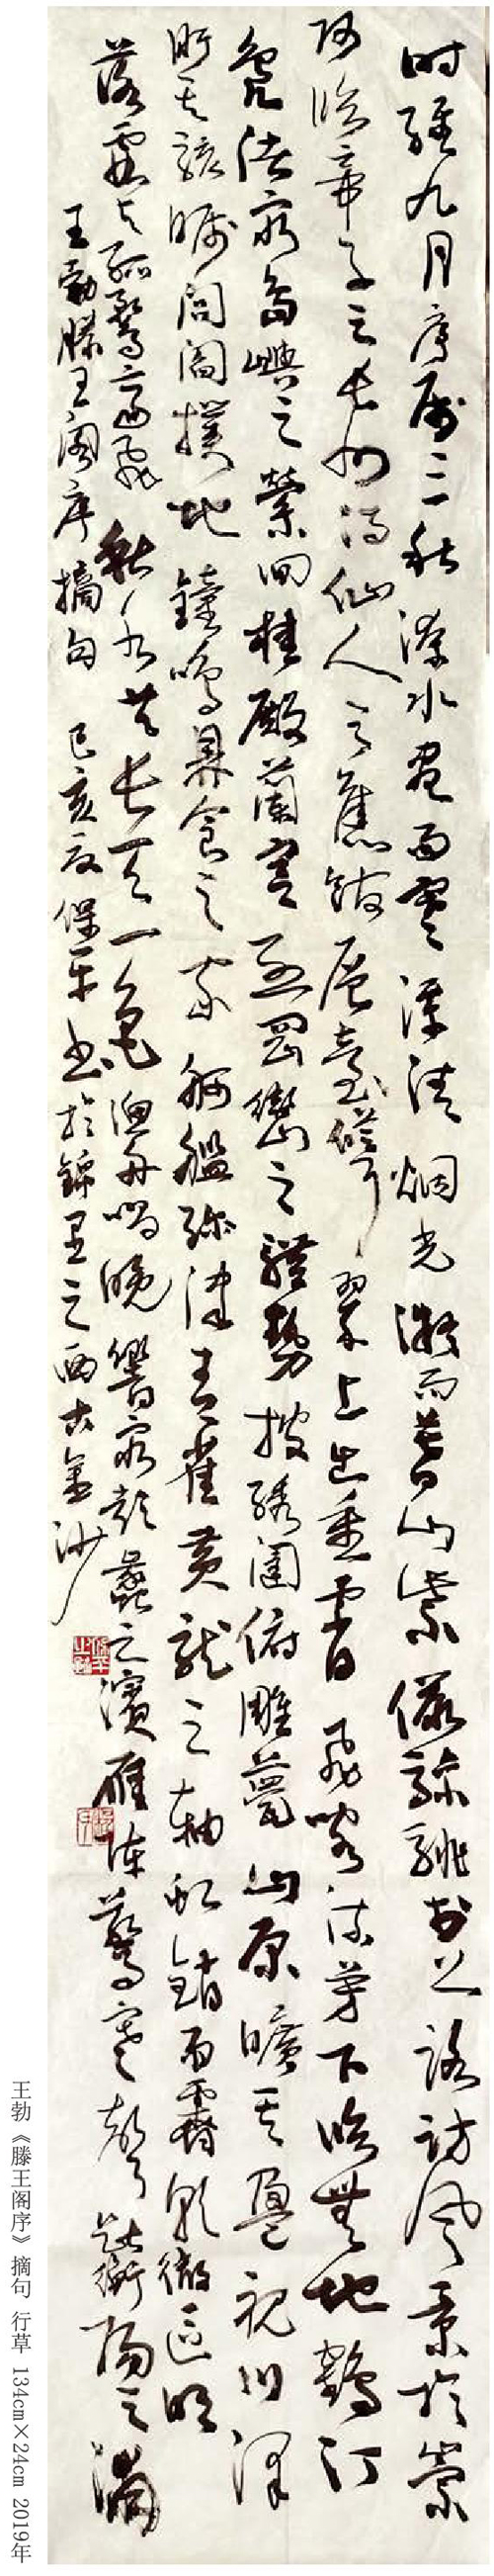 时维九月序属三秋潦水尽而寒潭清烟光凝而暮山紫俨骖騑於上路访风景於崇
阿临帝子之长洲得仙人之旧馆层台耸翠上出重霄飞阁流丹下临无地鹤汀
凫渚穷岛屿之萦回桂殿兰宫列冈峦之体势披绣闼俯雕甍山原旷其盈视川泽
盱其骇瞩闾阎扑地钟鸣鼎食之家舸舰弥津青雀黄龙之轴虹销雨霁彩彻区明
落霞与孤鹜齐飞秋水共长天一色渔舟唱晚响穷彭蠡之滨雁阵惊寒声断衡阳之浦
王勃滕王阁序摘句 己亥夏保平书於锦里之西古金沙
王勃《滕王阁序》摘句 行草 134cm×24cm 2019年